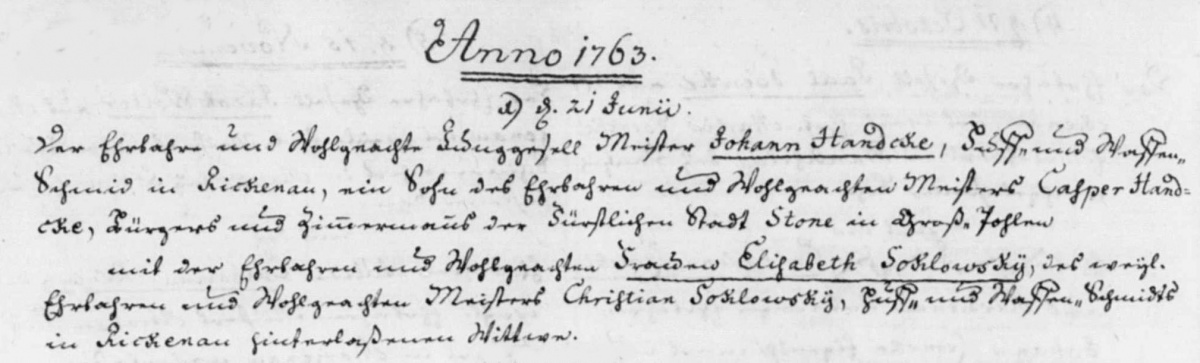 Anno 1763.
1) d. 21 Junii.
Der Ehrbahre und Wohlgeachte Junggesell Meister Johann Handcke, Huff- und Waffen-
Schmid in Rickenau, ein Sohn des Ehrbahren und Wohlgeachten Meisters Casper Hand-
cke, Bürgers und Zimmermans der Fürstlichen Stadt Stone in Groß-Pohlen
mit der Ehrbahren und Wohlgeachten Frauen Elisabeth Sokilowsky, des weyl.
Ehrbahren und Wohlgeachten Meisters Christian Sokilowsky, Huff- und Waffen-Schmidts
in Rickenau hinterlaßenen Wittwe.